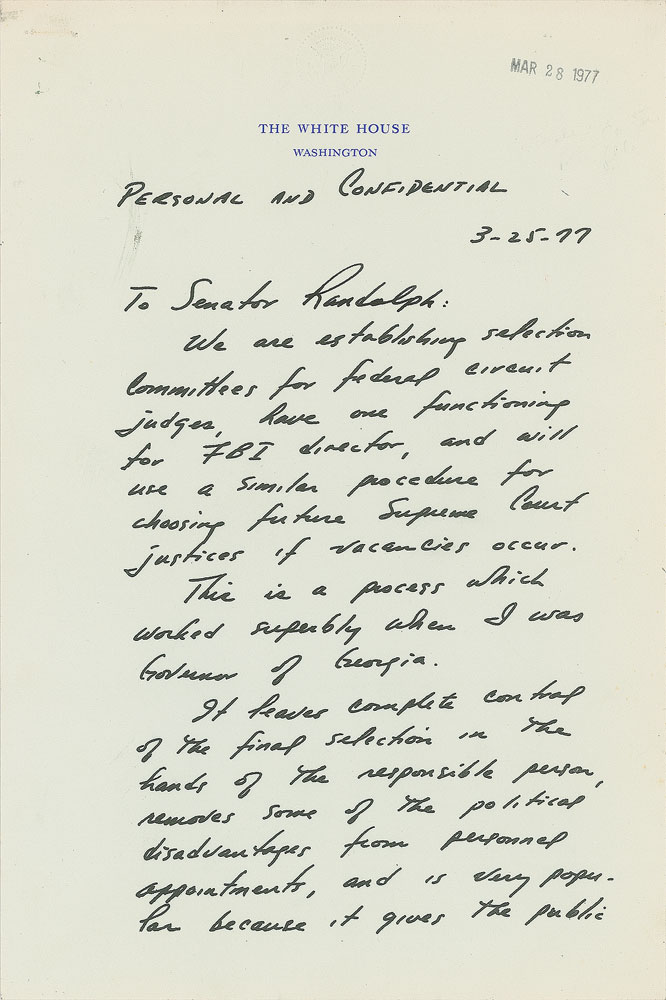 MAR 28 1977
THE WHITE HOUSE
WASHINGTON
PERSONAL AND CONFIDENTIAL
3-25-77
To Senator Randolph:
We are establishing selection
committees for federal circuit
judges, have one functioning
for FBI director, and will
use a similar procedure for
choosing future Supreme Court
justices if vacancies occur.
This is a process which
worked superbly when I was
Governor of Georgia.
It leaves complete control
of the final selection in the
hands of the responsible person,
removes some of the political
disadvantages from personnel
appointments, and is very popu-
lar because it gives the public